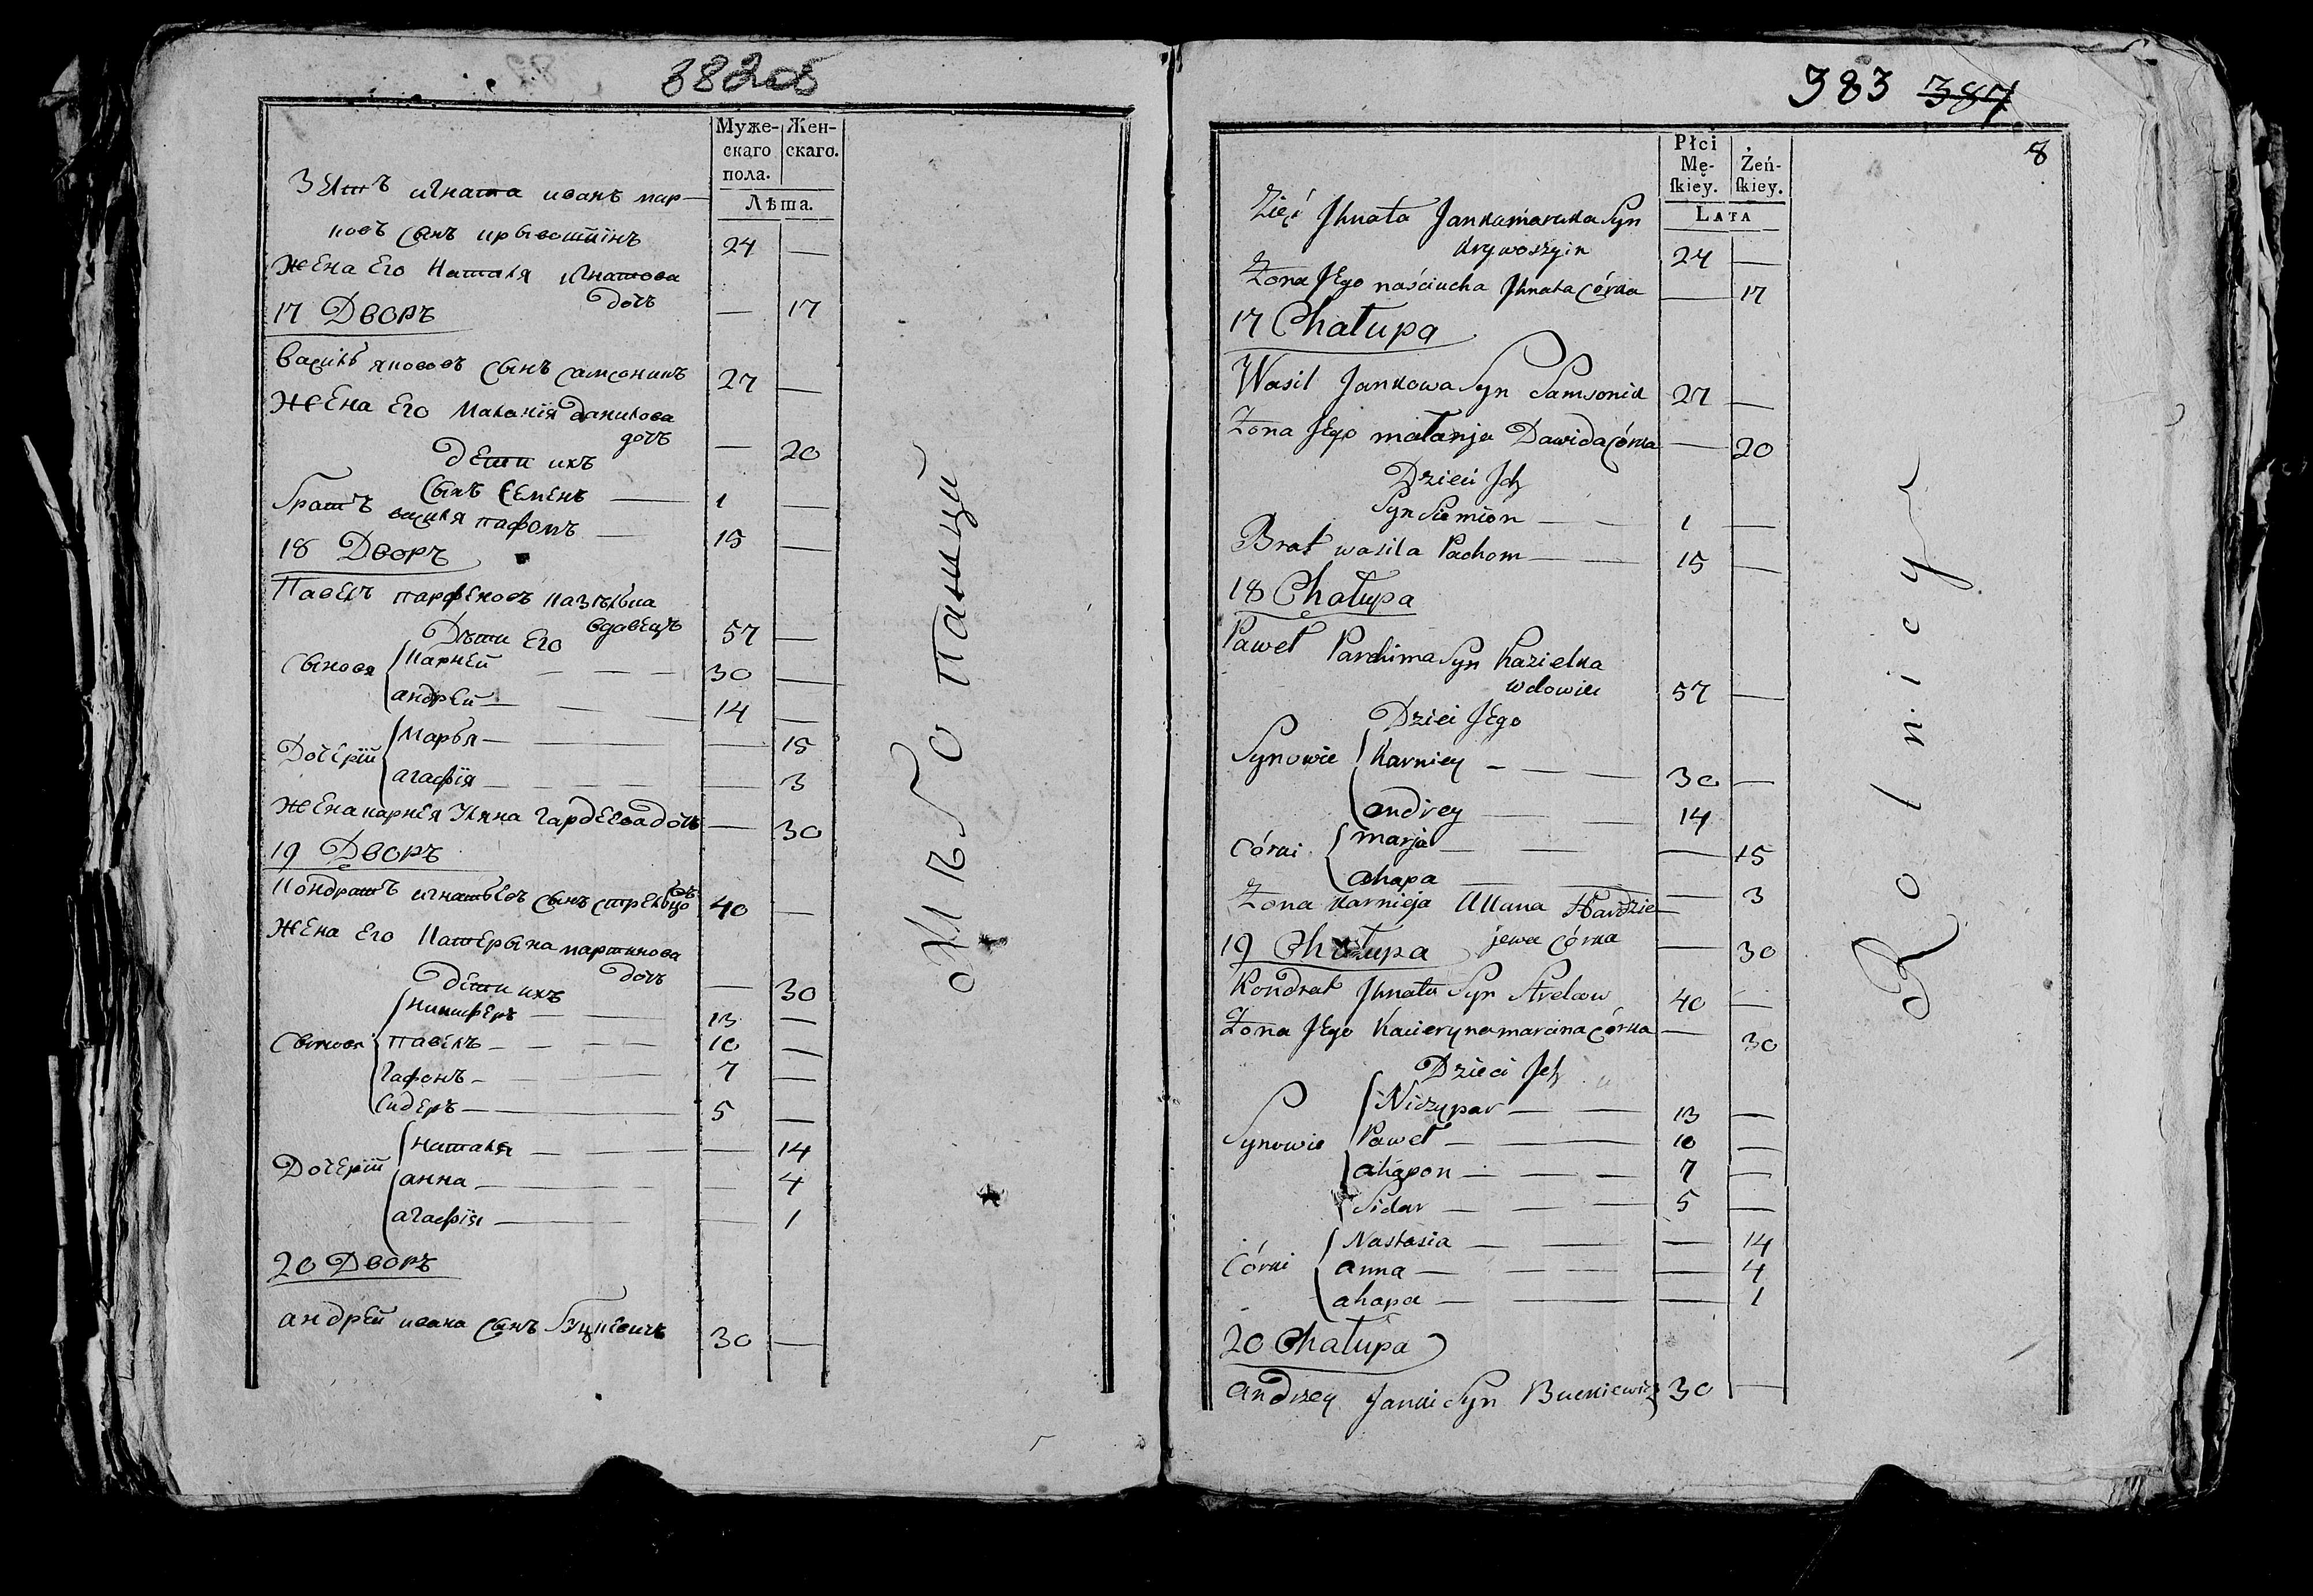 382об
Муже-
скаго
пола.
Жен-
скаго.
Лѣта.
Зеть игната иванъ мар-
ковъ сынъ крывошыинъ 24 —
Жена Его Наталя игнатова
дочь — 17
17 Дворъ
Василь яковов сынъ самсоникъ 27 —
Жена Его Маланiя данилова
дочь — 20
дети ихъ
Сынъ Семенъ — 1 —
братъ василя пафомъ — 15 —
18 Дворъ
Павелъ парфеновъ казѣлка
вдовецъ 57 —
Дѣти Его
Сыновя Карней — — — 30 —
андрей — — — 14 —
Дочерiи Марья — — — 15
агафiя — — — — — 3
Жена карнея Уляна гардеева дочь — 30
19 Дворъ
Кондратъ игнатьевъ сынъ стрельцовъ 40 —
Жена Его Катерына мартинова
дочь — 30
дети ихъ
Сыновя Никиферъ — — 13 —
Павелъ — — — — 10 —
Гафонъ — — — 7 —
Сидеръ — — — 5 —
Дочерiи Наталя — — — — 14
анна — — — — — 4
агафiя — — — — 1
20 Дворъ
андрей ивана сынъ Буцкевичъ 30 —
Хлѣбопашцы
383 387
8
Płci
Mę-
ſkiey.
Żeń-
ſkiey.
Lata
Zięć Jhnata Janka maruka Syn
Krywoszyin 24 —
Żona Jego naściucha Jhnata Córka — 17
17 Chałupa
Wasil Jankowa Syn Samsonik 27 —
Żona Jego małanja Dawida Córka — 20
Dzieci Jch
Syn Siemion — — 1 —
Brat wasila Pachom — — 15 —
18 Chałupa
Paweł Parchima Syn Kazielka
wdowiec 57 —
Dzieci Jego
Synowie Karniey — — — 30 —
andrey — — 14
Córki marja — — — 15
ahapa — — — 3
Żona Karnieja Ullana Hardzie
jewa Córka — 30
19 Chałupa
Kondrat Jhnata Syn Strelcow 40 —
Żona Jego Kacieryna marcina Córka — 30
Dzieci Jch
Synowie Niczypar — — 13 —
Paweł — — 10 —
ahapon — — — 7 —
Sidar — — — 5 —
Córki Nastasia — — — 14
anna — — — — 4
ahapa — — — 1
20 Chałupa
andrzey Janki Syn Buckiewicz 30 —
Rolnicy